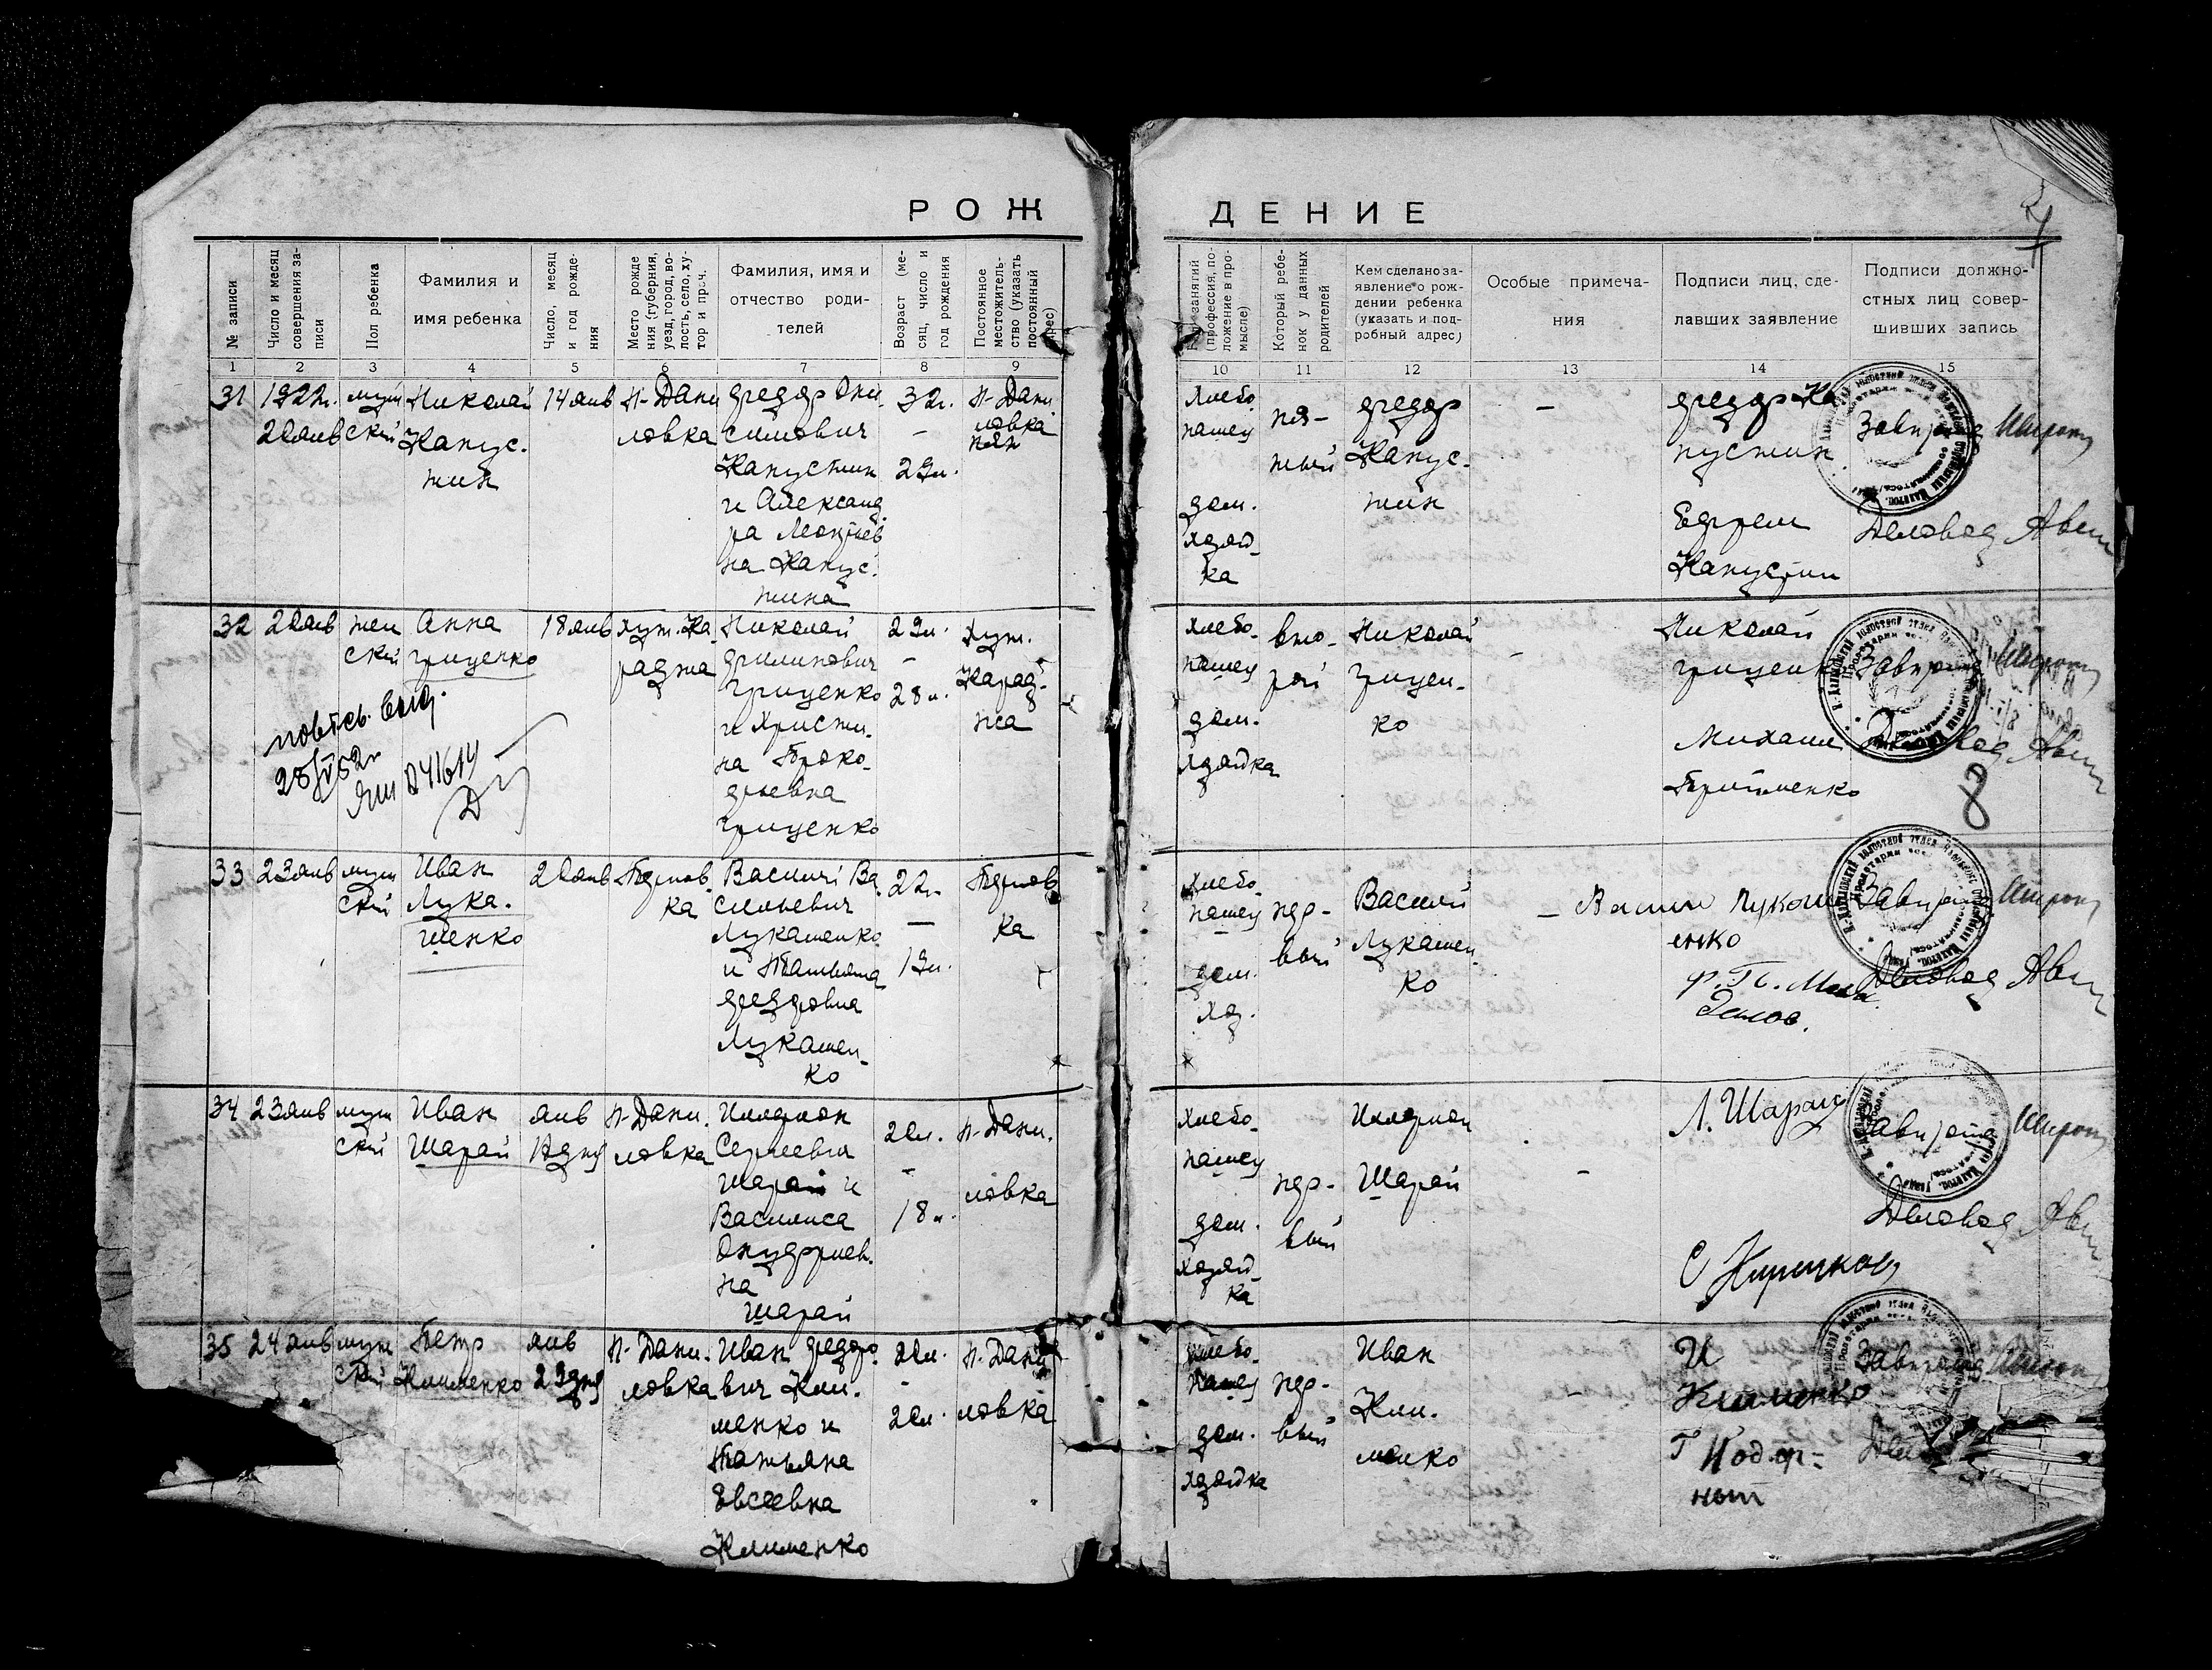 РОЖДЕНИЕ
№ записи
Число и месяц
совершения за-
писи
Пол ребенка
Фамилия и
имя ребенка
Число, месяц
и год рожде-
ния
Место рожде
ния (губерния,
уезд, город, во-
лость, село, ху-
тор и проч.
Фамилия, имя и
отчество роди-
телей
Возраст (ме-
сяц, число и
год рождения
Постоянное
местожитель-
ство (указать
постоянный
адрес)
занятий
(профессия, по-
ложение в про-
мысле)
Который ребе-
нок у данных
родителей
Кем сделано за-
явление о рож-
дении ребенка
(указать и под-
робный адрес)
Особые примеча-
ния
Подписи лиц, сде-
лавших заявление
Подписи должно-
стных лиц совер-
шивших запись
1 2 3 4 5 6 7 8 9 10 11 12 13 14 15
31
1922г.
20 янв
муж
ский
Николай
Капус-
тин
14 янв
Н-Дани
ловка
Федор Они
симович
Капустин
и Александ
ра Леонтьев
на Капус-
тина
32г.
–
29л.
Н-Дани
ловка
хлебо
пашец
дом.
хозяй-
ка
пя-
тый
Федор
Капус-
тин
–
Федор Ка
пустин
Ефрем
Капустин
Завправ
Деловод
32
20 янв
жен
ский
Анна
Гриценко
18 янв
Хут. Ка
раджа
Николай
Филипович
Гриценко
и Христи-
на Проко-
фьевна
Гриценко
29л.
–
28л.
Хут.
Карад-
жа
хлебо-
пашец
дом.
хозяйка
вто-
рой
Николай
Грицен-
ко
–
Николай
Гриценк
Михаил
Завправ
Деловод
повтсв. выд.
8
33
23 янв
муж
ский
Иван
Лука-
шенко
20 янв
ка
Василий Ва
сильевич
Лукашенко
и Татьяна
Федоровна
Лукашен-
ко
22г.
–
19л.
ка
хлебо-
пашец
дом.
хоз.
пер-
вый
Василий
Лукашен
ко
–
енко
Завправ
Деловод
34
23 янв
муж
ский
Иван
Шарай
янв
дня
Н-Дани-
ловка
Иларион
Сергеевич
Шарай и
Василиса
Онуфриев-
на
Шарай
20л.
–
18л.
Н-Дани-
ловка
хлебо-
пашец
дом.
хозяй-
ка
пер-
вый
Иларион
Шарай
–
Завправ
Деловод
35
24 янв
муж
ский
Петр
Клименко
янв
23 дня
Н-Дани-
ловка
Иван Федоро
вич Кли-
менко и
Татьяна
Евсеевна
Клименко
20л.
–
20л.
Н-Дани
ловка
хлебо-
пашец
дом.
хозяйка
пер-
вый
Иван
Кли-
менко
–
И
Клименко
Завправ